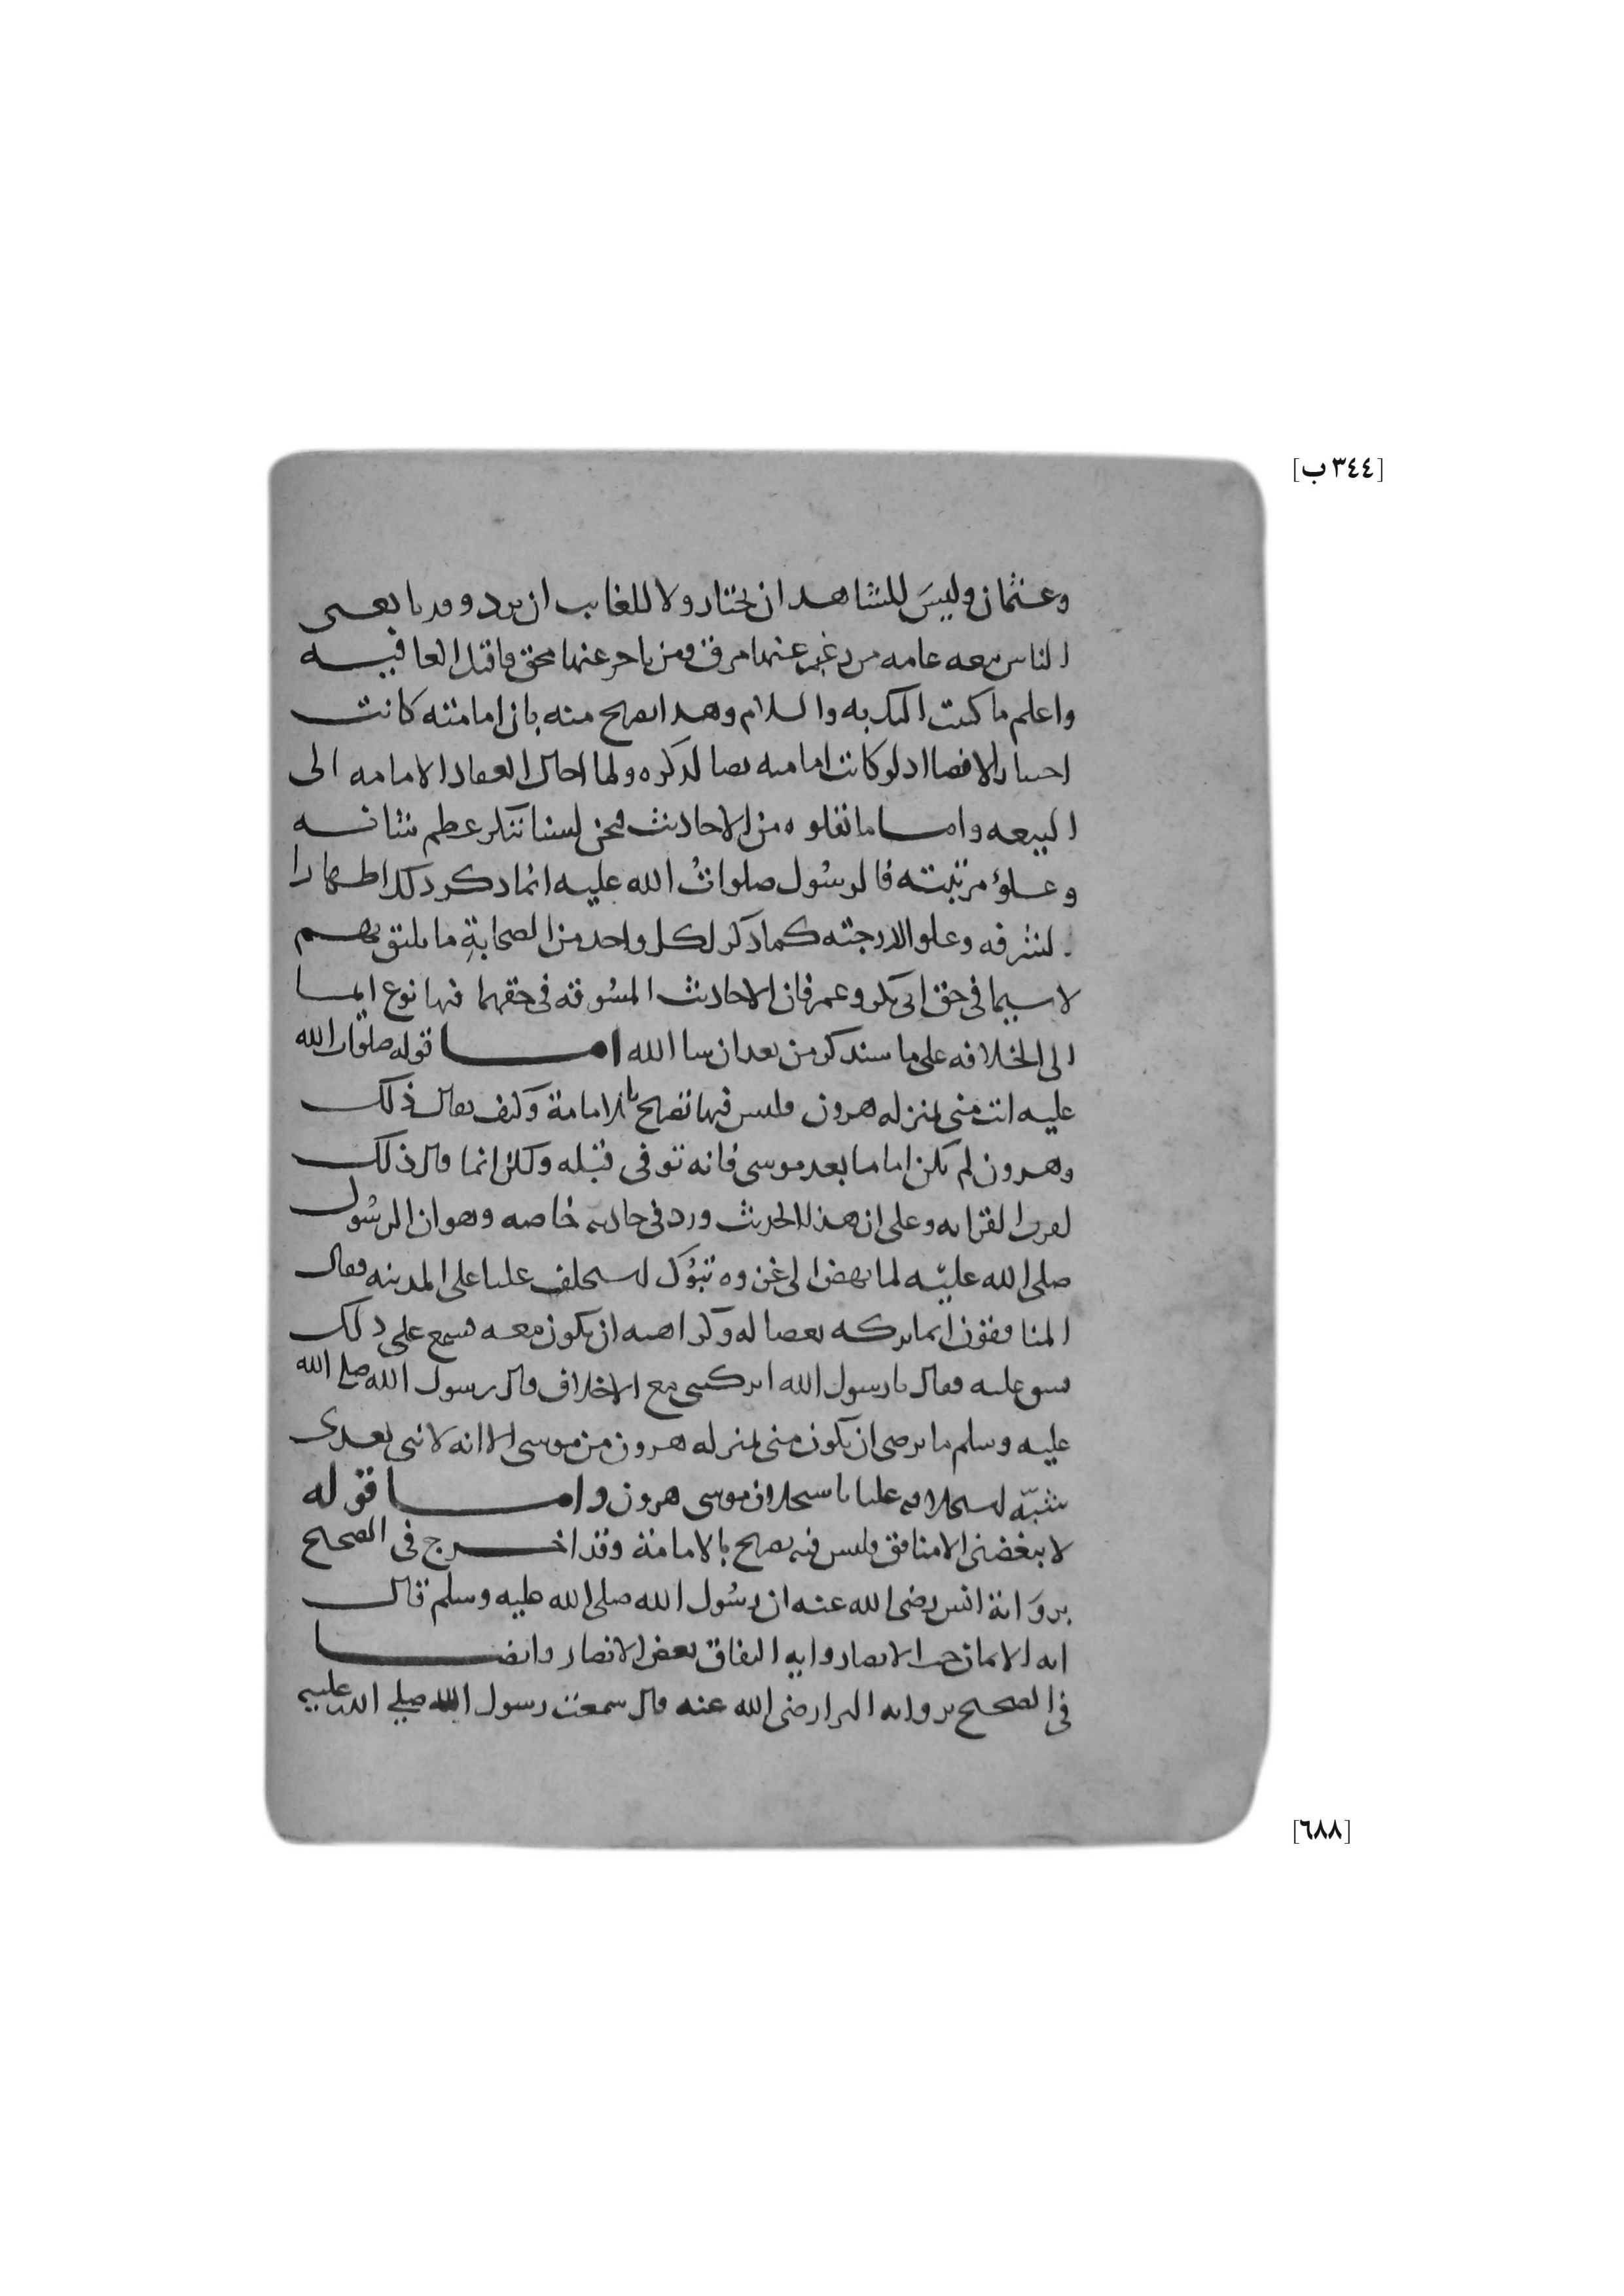 [٣٤٤ ب]
وعثمان وليسَ للشاهد ان يختار ولا للغايب ان يرد وقد بايعنى
الناس بيعه عامه من رغب عنها مرق ومن تاخر عنها محق فاقبل العافيه
واعلم ما كتبت اليك به والسلام وهذا تصريح منه بان امامته كانت
اختيارا لا نصا اذ لو كانت امامته نصا لذكره ولما احال انعقاد الامامه الى
البيعه واما ما نقلوه من الاحاديث فنحن لسنا ننكر عظم شانه
وعلوّ مرتبته فالرسُول صلواتُ الله عليه انما ذكر ذلك اظهارا
لشرفه وعلوا لدرجته كما ذكر لكل واحد من الصحابةِ ما يليق بهم
لا سيما في حق ابي بكر وعمر فان الاحاديث المسُوقه في حقهما فيها نوع ايما
الى الخلافه على ما سنذكر من بعد ان شا الله اما قوله صلوات الله
عليه انت منى بمنزله هرون فليس فيها تصريح بالامامة وكيف يقال ذلك
وهرون لم يكن اماما بعد موسى فانه توفى قبله ولكن انما قال ذلك
لقرب القرابه وعلى ان هذا الحديث ورد في حادثه خاصه وهو ان الرسُول
صلى الله عليه لما نهض الى غزوه تبوُك استخلف عليا على المدينه فقال
المنافقون انما تركه بغضا له وكراهيه ان يكون معه فسمع على ذلك
فشق عليه فقال يا رسول الله اتركتنى مع الاخلاف قال رسول الله صلى الله
عليه وسلم ما ترضى ان تكون منى بمنزله هرون من موسى الا انه لا نبى بعدى
شبّه استخلافه عليا باستخلاف موسى هرون واما قوله
لا يبغضنى الا منافق فليس فيه تصريح بالامامة وقد اخرج في الصحيح
بروَاية انس رضى الله عنه ان رسُول الله صلى الله عليه وسلم قال
ايه الايمان حب الانصار وايه النفاق بغض الانصار وايضا
في الصحيح بروايه البرا رضى الله عنه قال سمعت رسول الله صلى الله عليه
[٦٨٨]